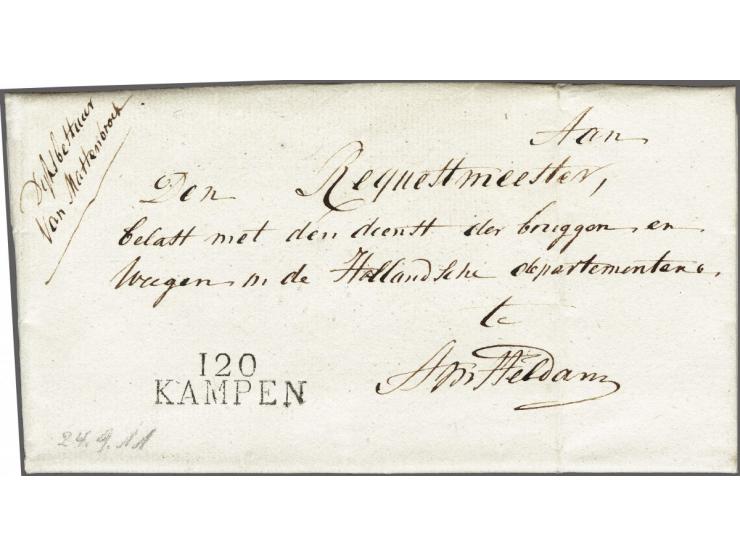 Dijksbestuur
van Mastenbroek
Aan
Den Requestmeester,
belast met den dienst der bruggen en
Weegen in de Hollandsche departementen
te
Amsteldam
120
KAMPEN
24.9.11